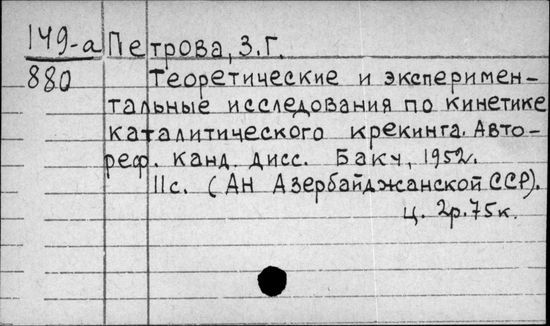 149-а Петрова, З.Г.
880 Теоретические и эксперимен-
тальные исследования по кинетике
каталитического крекинга. Авто-
реф. канд. дисс. Баку, 1952.
11с. (Ан Азербайджанской ССР).
ц. 2р.75к.